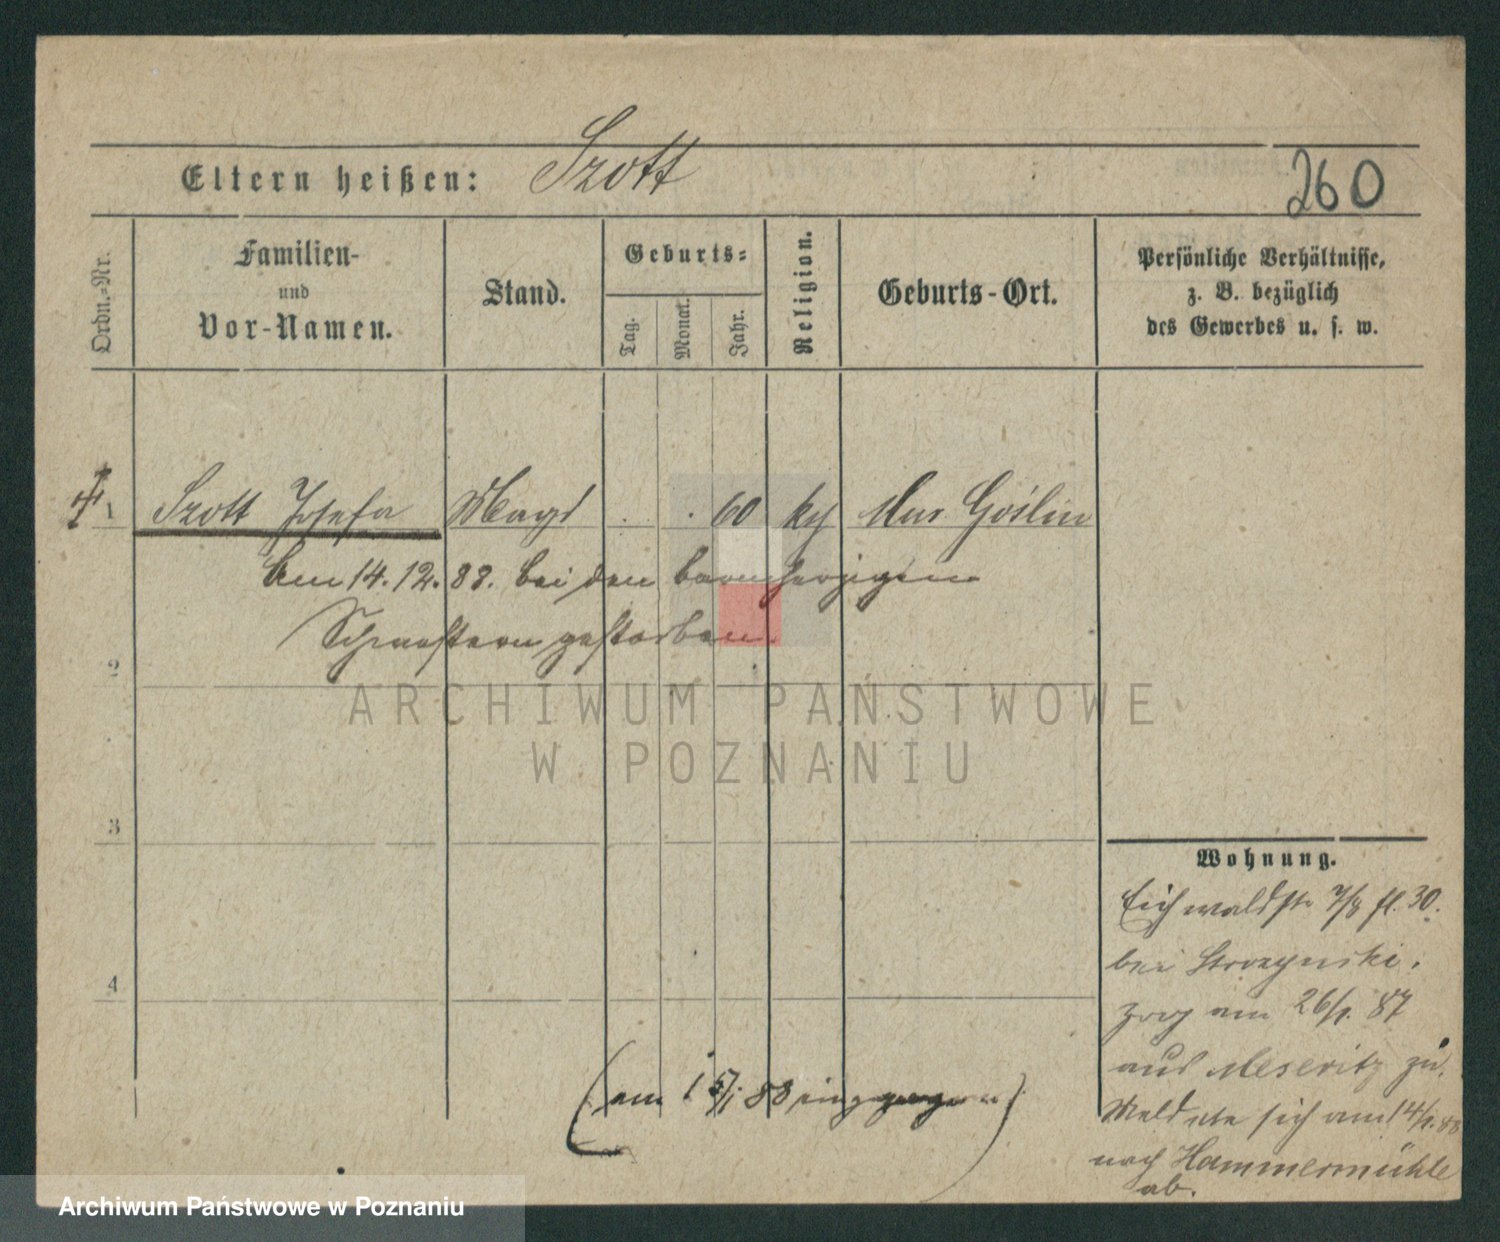 Eltern heißen: Szott
260
Ordn.-Nr.
Familien-
und
Vor-Namen.
Stand.
Geburts-
Tag.
Monat.
Jahr.
Religion.
Geburts-Ort.
Persönliche Verhältnisse,
z. B. bezüglich
des Gewerbes u. s. w.
1 Szott Josefa Magd . . 60 kath Mur. Goślin
Am 14. 12. 88. bei den barmherzigen
Schwestern gestorben.
2
ARCHIWUM PAŃSTWOWE
W POZNANIU
3
4
Wohnung.
Eichwaldstr 7/8 fl. 30.
bei
zog am 26/1. 87
aus Meseritz zu.
Meldete sich am 14/1. 88
nach Hammermühle
ab.
(am 1 88 eingezogen)
Archiwum Państwowe w Poznaniu